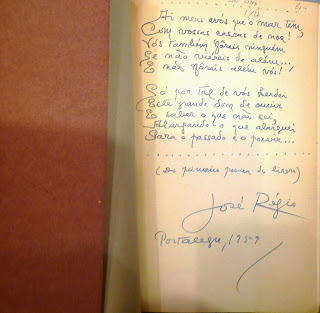 Ai meus avós que o mar tem,
Com vossas cascas de noz!
Vós também fôreis ninguém
Se não viésseis de além...
E não fôreis além vós!
Só por tal de vós herdei
Este grande dom de ouvir
E saber o que não sei,
Alargando o que alarguei
Para o passado e o porvir...
(Do primeiro poema do livro)
José Régio
Portalegre, 1959